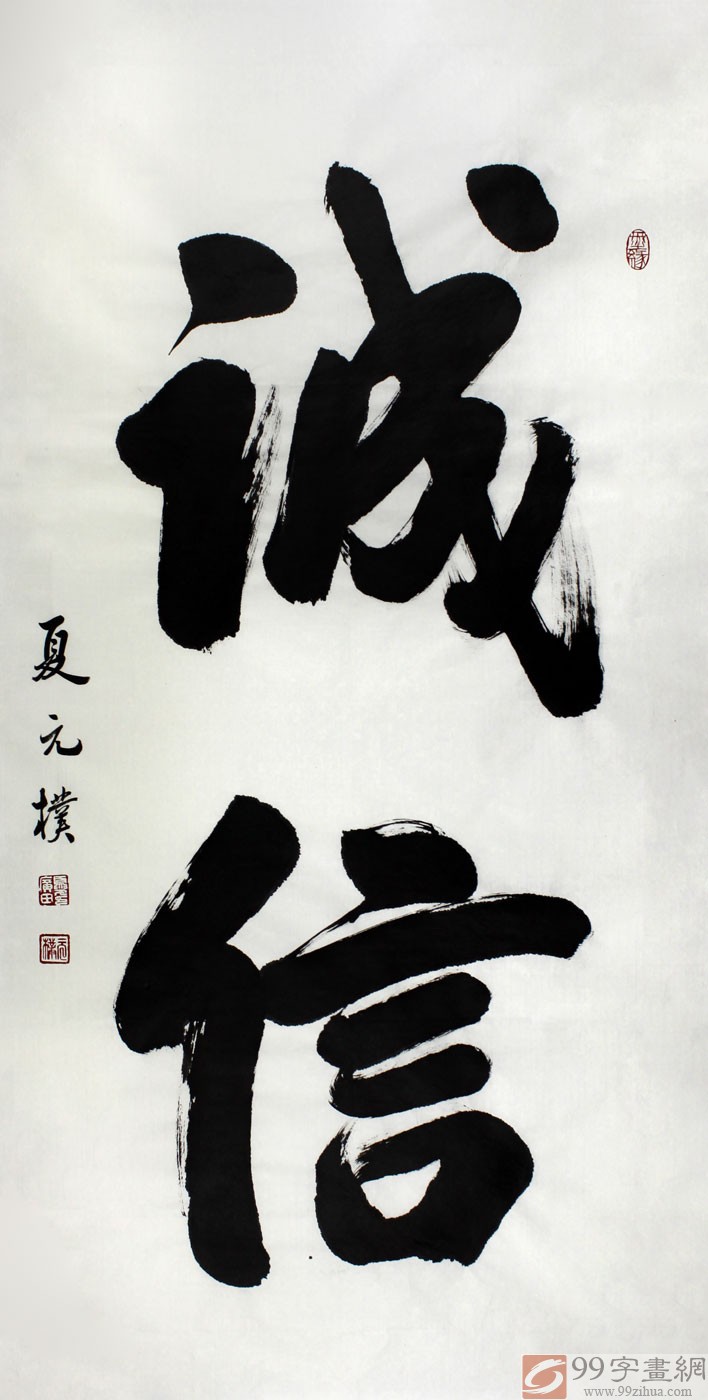 诚信
夏元樸
99字畫網
www.99zihua.com